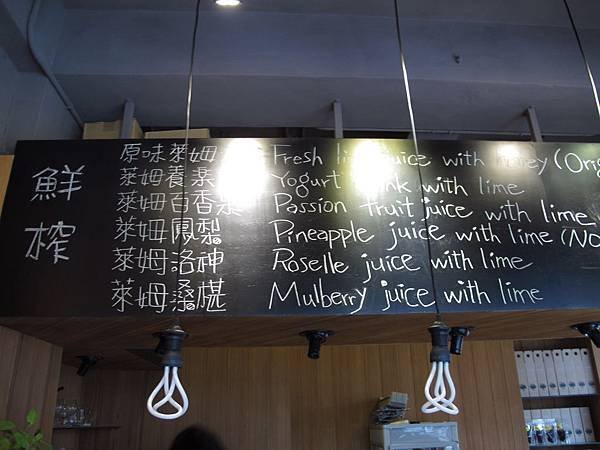 鮮榨
原味萊姆 Fresh lime juice with honey (Orig
萊姆養樂 Yogurt drink with lime
萊姆百香果 Passion fruit juice with lime
萊姆鳳梨 Pineapple juice with lime (No
萊姆洛神 Roselle juice with lime
萊姆桑椹 Mulberry juice with lime